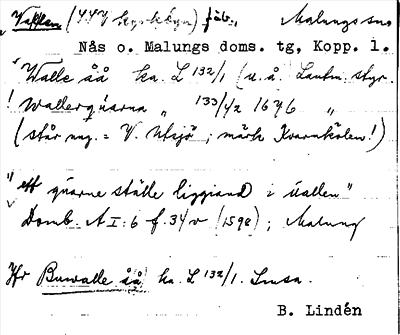 Vallen (447 kyrkbyn) fäb., Malungs sn
Nås o. Malungs doms. tg, Kopp. l.
"Walle åå ka. L 132/1 (u.å.) Lantm.styr.
! Wallerquarna " 133/42 1646 "
(står nog. = V. Utsjö; märk Kvarnkölen!)
"ett quarne ställe liggiand i uallen"
Domb. A I:6 f. 34 v (1598); Malung
Hr Buwalle åå ka. L 132/1. Lmsa.
B. Lindén